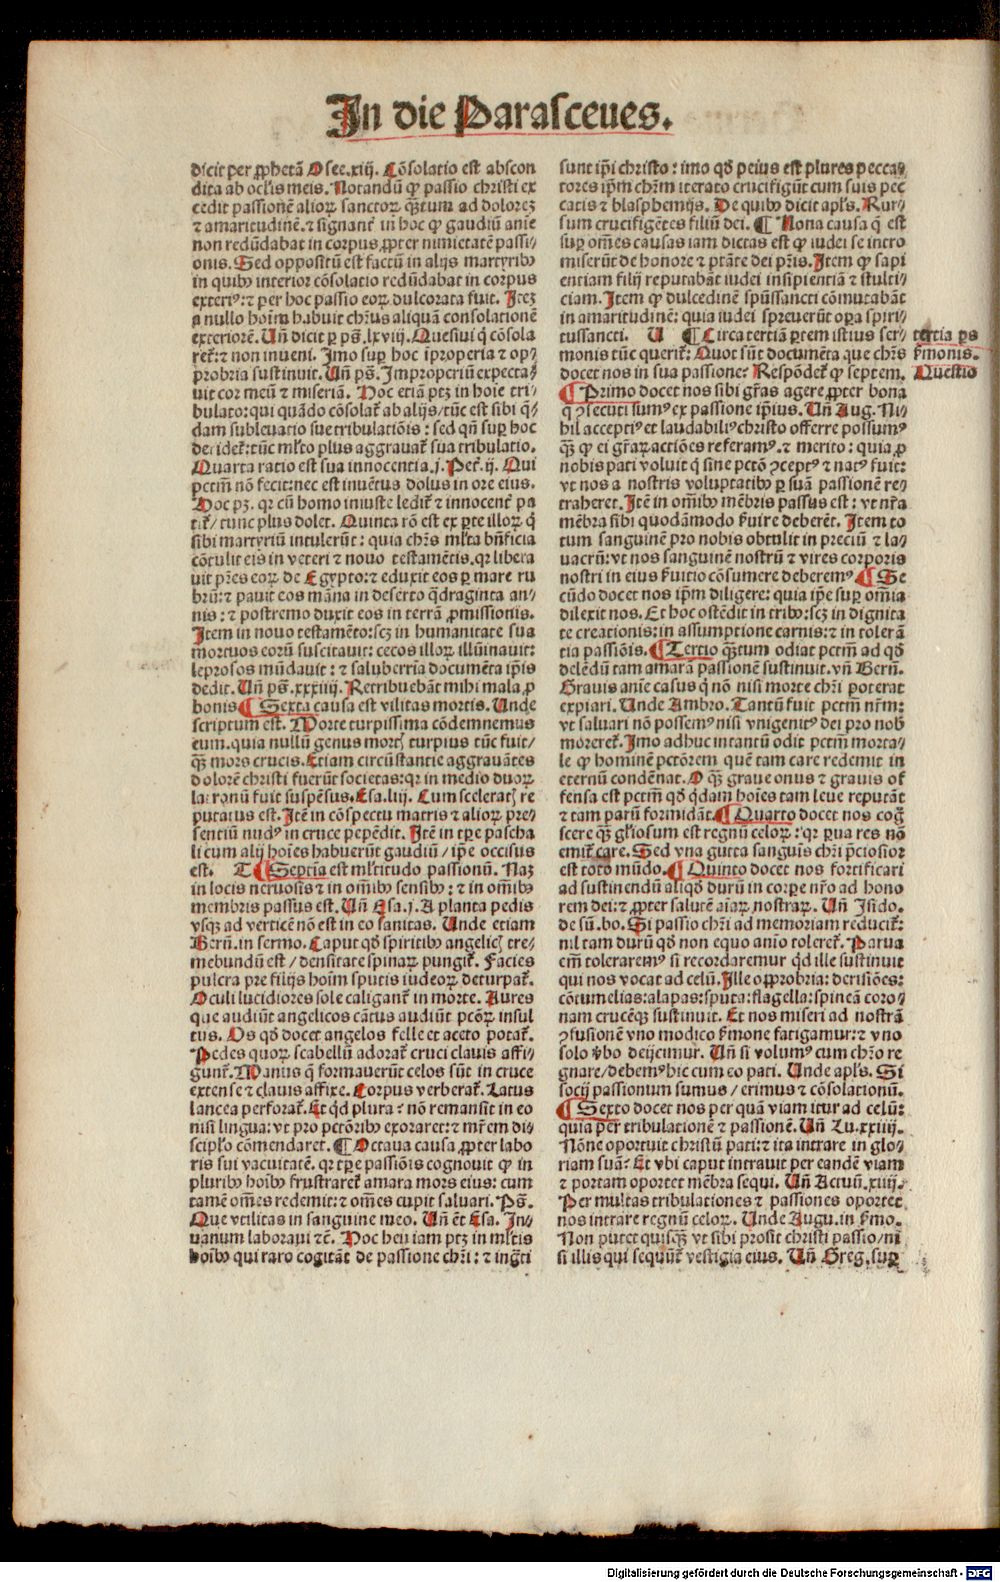 In die Parasceues.
dicit per ꝓphetā Osee.xiij. Cōsolatio est abscon
dita ab ocl'is meis. Notandū ꝙ passio christi ex
cedit passionē alioꝝ sanctoꝝ qꝫtum ad dolorez
⁊ amaritudinē. ⁊ signanť in hoc ꝙ gaudiū anīe
non redūdabat in corpus ꝓpter nimietatē passi/
onis. Sed oppositū est factū in alijs martyribꝰ
in quibꝰ interior cōsolatio redūdabat in corpus
exteriꝰ: ⁊ per hoc passio eoꝝ dulcorata fuit. Itez
a nullo hoīm habuit chrūs aliquā consolationē
exteriorē. Vñ dicit ꝑ ps̄. lxviij. Quesiui q̄ cōsola
reť: ⁊ non inueni. Imo suꝑ hoc īproperia ⁊ op/
probria sustinuit. Vñ ps̄. Improperiū expecta/
uit cor meū ⁊ miseriā. Hoc etiā ptꝫ in hoīe tri/
bulato: qui quādo cōsolať ab alijs/ tūc est sibi q̄/
dam subleuatio sue tribulatiōis: sed qn̄ suꝑ hoc
derideť: tūc ml'to plus aggrauať sua tribulatio.
Quarta ratio est sua innocentia. j. Peť. ij. Qui
pctm̄ nō fecit: nec est inuētus dolus in ore eius.
Hoc pꝫ. qr cū homo iniuste lediť ⁊ innocenť pa
tiť/ tunc plus dolet. Quinta rō est ex ꝑte illoꝝ q̄
sibi martyriū intulerūt: quia chrs̄ ml'ta bn̄ficia
cōtulit eis in veteri ⁊ nouo testamētis. qr libera
uit pr̄es eoꝝ de Egypto: ⁊ eduxit eos ꝑ mare ru
brū: ⁊ pauit eos māna in deserto qdraginta an/
nis: ⁊ postremo duxit eos in terrā ꝓmissionis.
Item in nouo testamēto: scꝫ in humanitate sua
mortuos eorū suscitauit: cecos illoꝝ illūinauit:
leprosos mūdauit: ⁊ saluberrīa documēta ip̄is
dedit. Vñ ps̄. xxxiiij. Retribuebāt mihi mala ꝓ
bonis ¶ Sexta causa est vilitas mortis. Vnde
scriptum est. Morte turpissima cōdemnemus
eum. quia nullū genus mortꝭ turpius tūc fuit/
qꝫ mors crucis. Etiam circūstantie aggrauātes
dolorē christi fuerūt societas: qr in medio duoꝝ
latronū fuit suspēsus. Esa. liij. Cum sceleratꝭ re
putatus est. Itē in cōspectu matris ⁊ alioꝝ pre/
sentiū nudꝰ in cruce pepēdit. Itē in tp̄e pascha
li cum alij hoīes habuerūt gaudiū/ ip̄e occisus
est. T ¶ Septīa est ml'titudo passionū. Naꝫ
in locis neruosis ⁊ in om̄ibꝰ sensibꝰ: ⁊ in om̄ibꝰ
membris passus est. Vñ Esa. j. A planta pedis
vsqꝫ ad verticē nō est in eo sanitas. Vnde etiam
Bern̄. in sermo. Caput qd̄ spiritibꝰ angelicꝭ tre/
mebundū est/ densitate spinaꝝ pungiť. Facies
pulcra pre filijs hoīm sputis iudeoꝝ deturpať.
Oculi lucidiores sole caliganť in morte. Aures
que audiūt angelicos cātus audiūt pcōꝝ insul
tus. Os qd̄ docet angelos felle et aceto potať.
Pedes quoꝝ scabellū adorať cruci clauis affi/
gunť. Manus q̄ formauerūt celos sūt in cruce
extense ⁊ clauis affixe. Corpus verberať. Latus
lancea perforať. Et qd̄ plura? nō remansit in eo
nisi lingua: vt pro pctōribꝰ exoraret: ⁊ mr̄em di/
scipl'o cōmendaret. ¶ Octaua causa ꝓpter labo
ris sui vacuitatē. qr tp̄e passiōis cognouit ꝙ in
pluribꝰ hoībꝰ frustrareť amara mors eius: cum
tamē om̄es redemit: ⁊ om̄es cupit saluari. Ps̄.
Que vtilitas in sanguine meo. Vñ ēt Esa. In/
uanum laboraui ⁊c̄. Hoc heu iam ptꝫ in ml'tis
hoībꝰ qui raro cogitāt de passione chr̄i: ⁊ ingr̄ti
sunt ip̄i christo: imo qd̄ peius est plures pecca/
tores ip̄m chr̄m iterato crucifigūt cum suis pec
catis ⁊ blasphemijs. De quibꝰ dicit apl's. Rur/
sum crucifigētes filiū dei. ¶ Nona causa q̄ est
suꝑ om̄es causas iam dictas est ꝙ iudei se intro
miserūt de honore ⁊ ptāte dei pr̄is. Item ꝙ sapi
entiam filij reputabāt iudei insipientiā ⁊ stulti/
ciam. Item ꝙ dulcedinē spūssancti cōmutabāt
in amaritudinē: quia iudei spreuerūt oꝑa spiri/
tussancti. V ¶ Circa tertiā ꝑtem istius ser/
monis tūc queriť: Quot sūt documēta que chrs̄
docet nos in sua passione? Respōdeť ꝙ septem.
¶ Primo docet nos sibi gr̄as agere ꝓpter bona
q̄ ꝯsecuti sumꝰ ex passione ip̄ius. Vñ Aug. Ni/
hil acceptiꝰ et laudabiliꝰ christo offerre possumꝰ
qꝫ ꝙ ei gr̄aꝝ actiōes referamꝰ. ⁊ merito: quia ꝓ
nobis pati voluit q̄ sine pctō ꝯceptꝰ ⁊ natꝰ fuit:
vt nos a nostris voluptatibꝰ ꝑ suā passionē re/
traheret. Itē in om̄ibꝰ mēbris passus est: vt nr̄a
mēbra sibi quodāmodo ẜuire deberēt. Item to
tum sanguinē pro nobis obtulit in preciū ⁊ la/
uacrū: vt nos sanguinē nostrū ⁊ vires corporis
nostri in eius ẜuitio cōsumere deberemꝰ ¶ Se
cūdo docet nos ip̄m diligere: quia ip̄e suꝑ om̄ia
dilexit nos. Et hoc ostēdit in tribꝰ: scꝫ in dignita
te creationis: in assumptione carnis: ⁊ in tolerā
tia passiōis. ¶ Tertio qꝫtum odiat pctm̄ ad qd̄
delēdū tam amarā passionē sustinuit. vñ Bern̄.
Grauis anīe casus q̄ nō nisi morte chr̄i poterat
expiari. Vnde Ambro. Tantū fuit pctm̄ nr̄m:
vt saluari nō possemꝰ nisi vnigenitꝰ dei pro nob̄
moreretꝭ. Imo adhuc intantū odit pctm̄ morta/
le ꝙ hominē pctōrem quē tam care redemit in
eternū condēnat. O qꝫ graue onus ⁊ grauis of
fensa est pctm̄ qd̄ qdam hoīes tam leue reputāt
⁊ tam parū formidāt. ¶ Quarto docet nos cog
scere qꝫ gl'iosum est regnū celoꝝ: qr ꝑua res nō
emiť care. Sed vna gutta sanguīs chr̄i p̄ciosior
est toto mūdo. ¶ Quinto docet nos fortificari
ad sustinendū aliqd̄ durū in corꝑe nr̄o ad hono
rem dei: ⁊ ꝓpter salutē aīaꝝ nostraꝝ. Vñ Isido.
de sū. bo. Si passio chr̄i ad memoriam reduciť:
nil tam durū qd̄ non equo anīo toleretꝭ. Parua
em̄ toleraremꝰ si recordaremur qd̄ ille sustinuit
qui nos vocat ad celū. Ille opprobria: derisiōes:
cōtumelias: alapas: sputa: flagella: spineā coro/
nam crucēqꝫ sustinuit. Et nos miseri ad nostrā
ꝯfusionē vno modico ẜmone fatigamur: ⁊ vno
solo v̄bo deijcimur. Vñ si volumꝰ cum chr̄o re
gnare/ debemꝰ hic cum eo pati. Vnde apl's. Si
socij passionum sumus/ erimus ⁊ cōsolationū.
¶ Sexto docet nos per quā viam itur ad celū:
quia per tribulationē ⁊ passionē. Vñ Lu. xxiiij.
Nōne oportuit christū pati: ⁊ ita intrare in glo/
riam suā? Et vbi caput intrauit per eandē viam
⁊ portam oportet mēbra sequi. Vñ Actuū. xiiij.
Per multas tribulationes ⁊ passiones oportet
nos intrare regnū celoꝝ. Vnde Augu. in ẜmo.
Non putet quisqꝫ vt sibi prosit christi passio/ ni
si illis qui sequūť vestigia eius. Vñ Greg. suꝑ
tertia ps
ẜmonis.
Questio
Digitalisierung gefördert durch die Deutsche Forschungsgemeinschaft - DFG